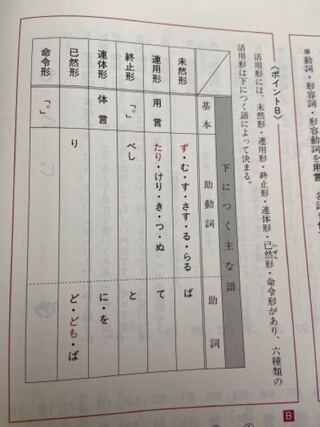 ※動詞・形容詞・形容動詞を用言
〈ポイントB〉
活用形には、未然形・連用形・終止形・連体形・已然形・命令形があり、六種類の
いぜん
活用形は下につく語によって決まる。
下につく主な語
基本 助動詞 助詞
未然形 ず・む・す・さす・る・らる ば
連用形 用言 たり・けり・き・つ・ぬ て
終止形 「。」 べし と
連体形 体言 に・を
已然形 り ど・ども・ば
命令形 「。」
B